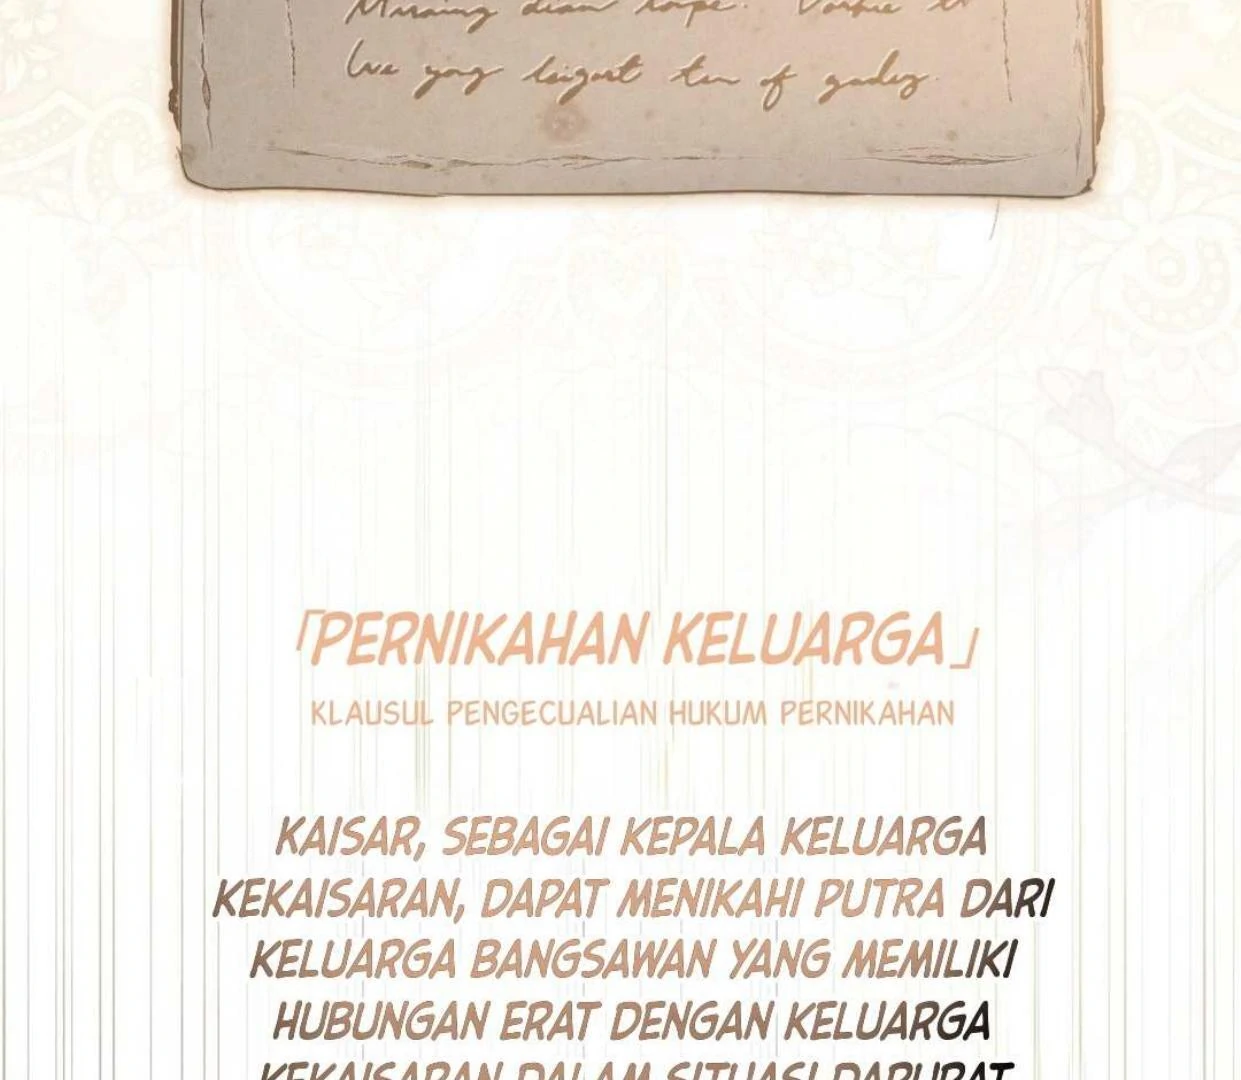 of
「PERNIKAHAN KELUARGA」
KLAUSUL PENGECUALIAN HUKUM PERNIKAHAN
KAISAR, SEBAGAI KEPALA KELUARGA
KEKAISARAN, DAPAT MENIKAHI PUTRA DARI
KELUARGA BANGSAWAN YANG MEMILIKI
HUBUNGAN ERAT DENGAN KELUARGA
KEKAISARAN DALAM SITUASI DARURAT